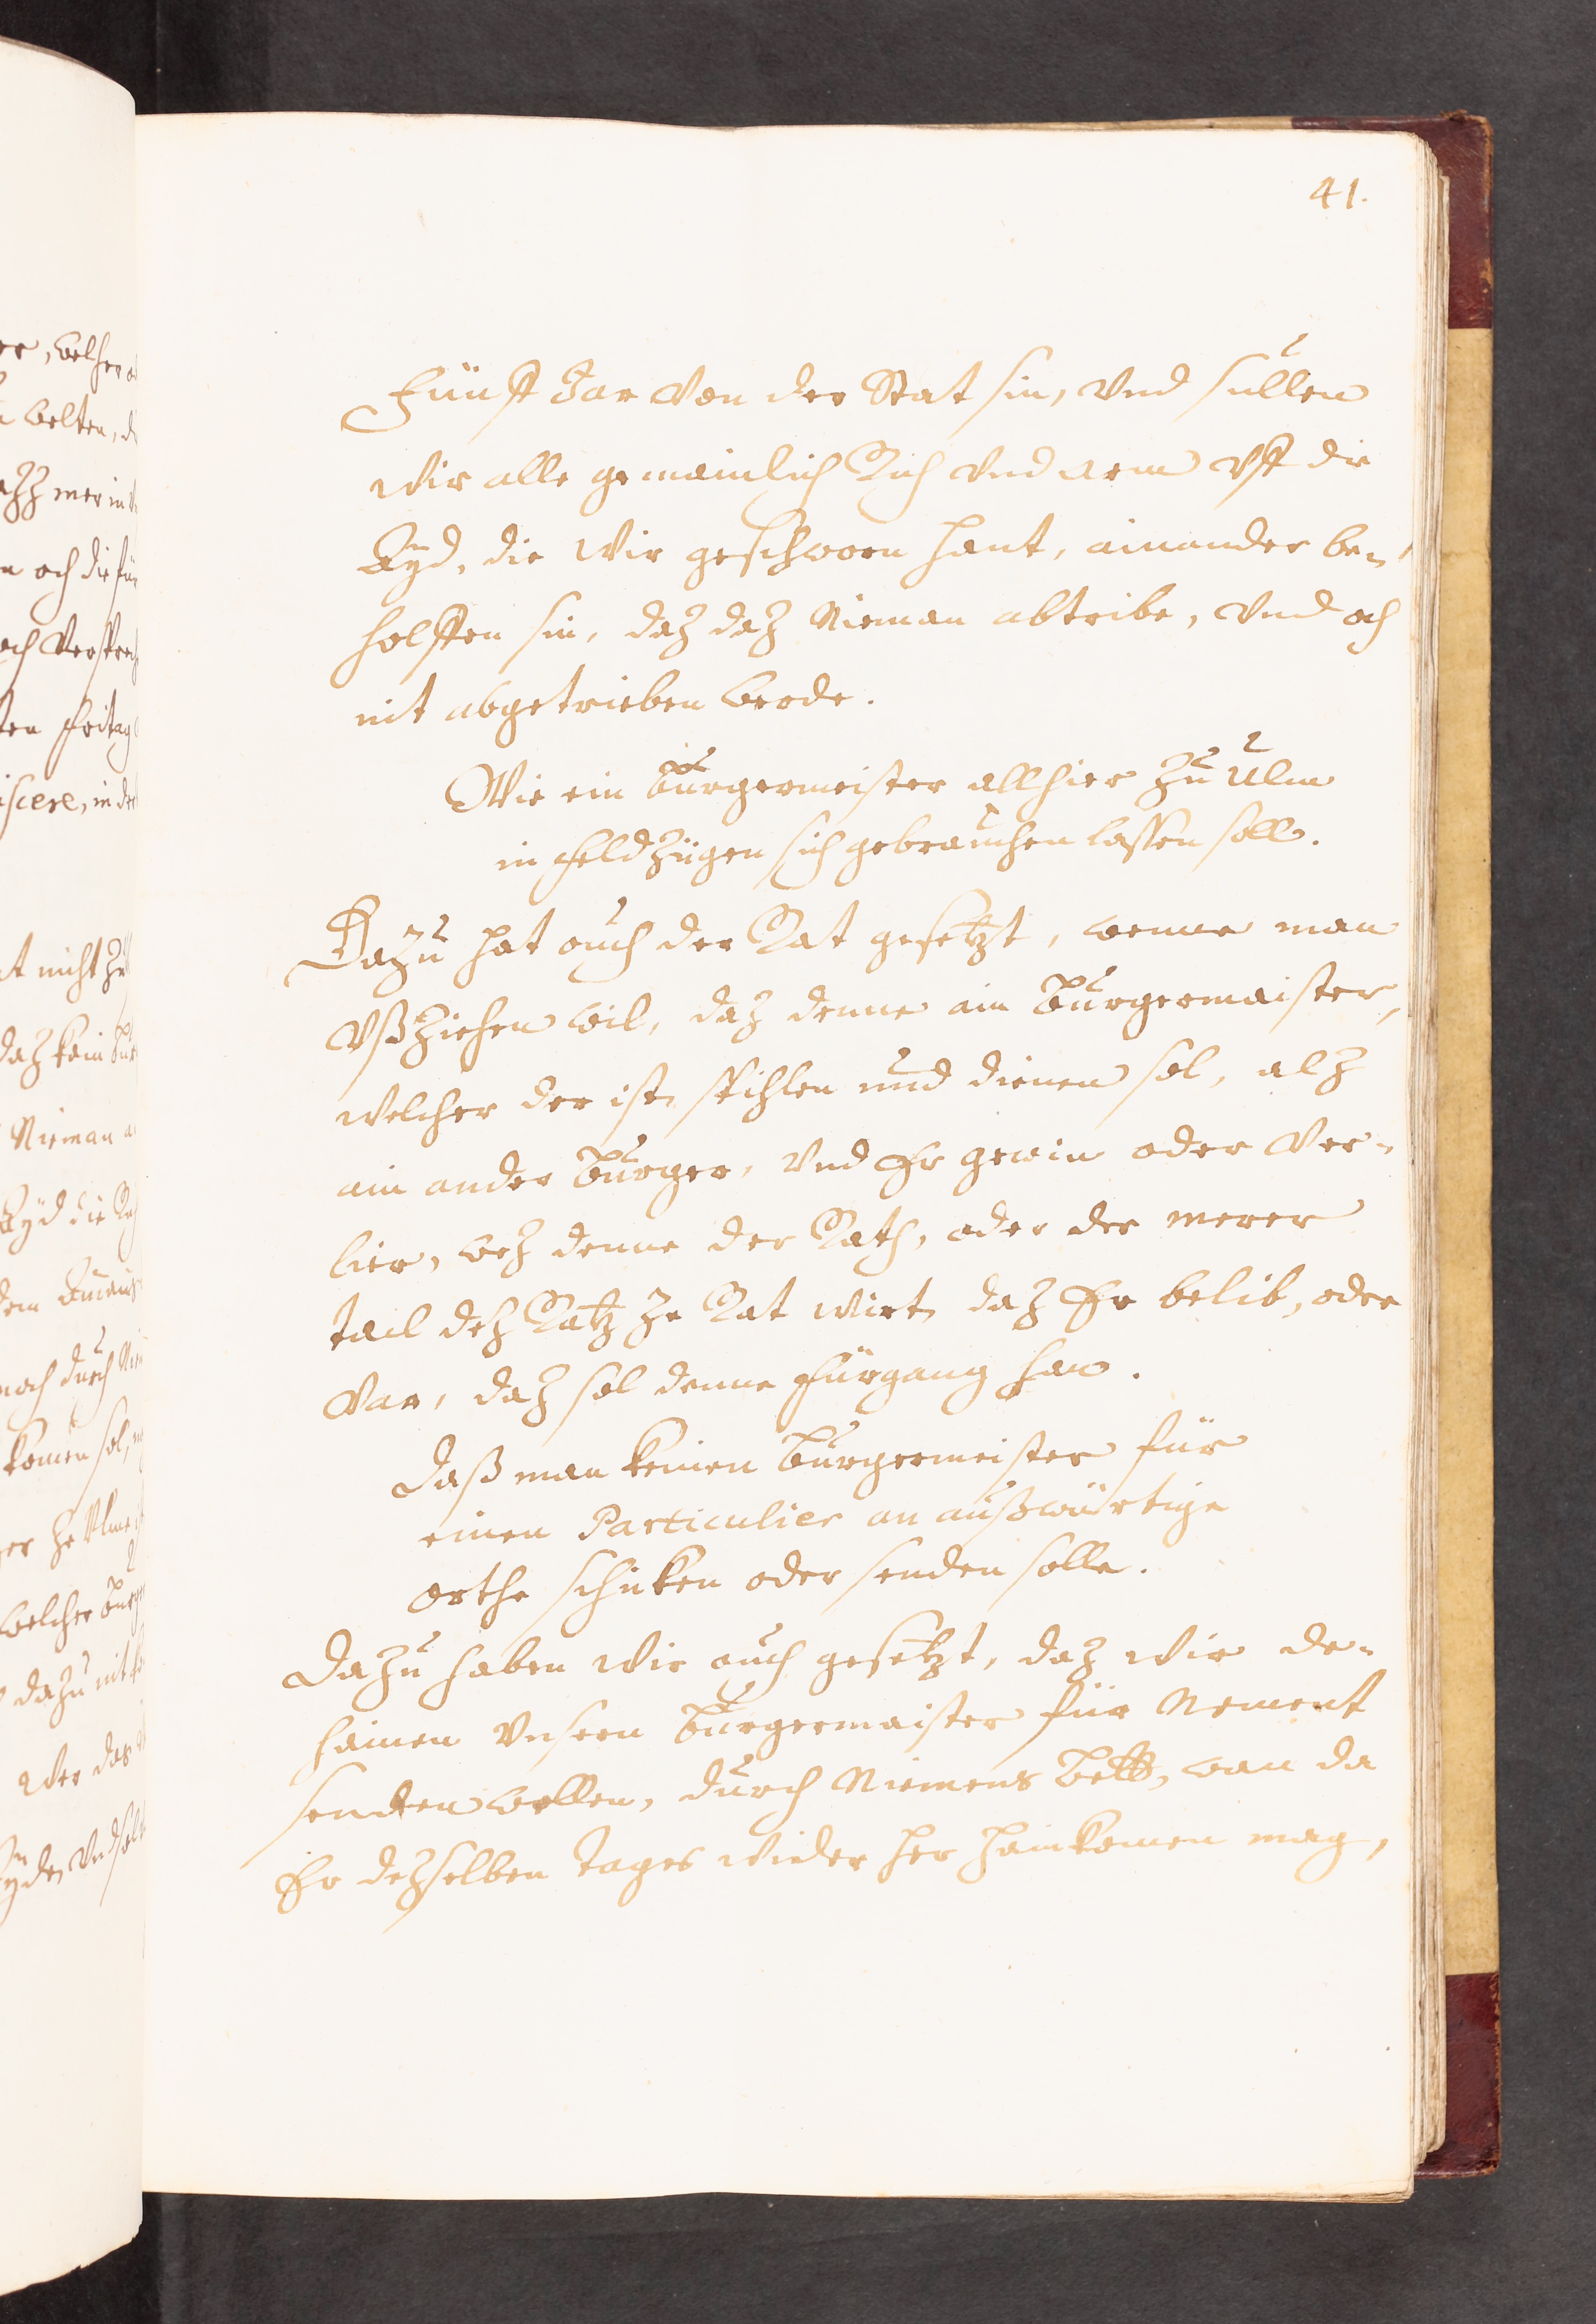 41.
Fünff Jar von der Stat sin, vnd sullen
wir alle gemainlich Rich vnd arm vff die
Ayd, die wir geschworn hant, ainander be-
holffen sin, daz daz Nieman abtribe, vnd och
nit abgetrieben werde.
Wie ein Burgermeister allhier zu Ulm
in Feldzügen sich gebrauchen lassen soll.
Dazu hat ouch der Rat gesetzt, wenne man
vßziehen wil, daz denne ain Burgermaister,
welcher der ist, spihlen und dienen sol, alz
ain ander Burger, vnd Er gewin oder ver-
lier, wez denne der Rath, oder der merer
tail dez Ratz ze Rat wirt, daz Er belib, oder
var, daz sol denne Fürgang han.
Daß man keinen Burgermeister für
einen Particulier an außwärtige
orthe schicken oder senden solle.
Dazu haben wir ouch gesetzt, daz wir de-
hainen vnsern Burgermaister für Nement
senden wellen, durch Niemens Bett, wan da
Er dezselben tages wider her hainkomen mag,